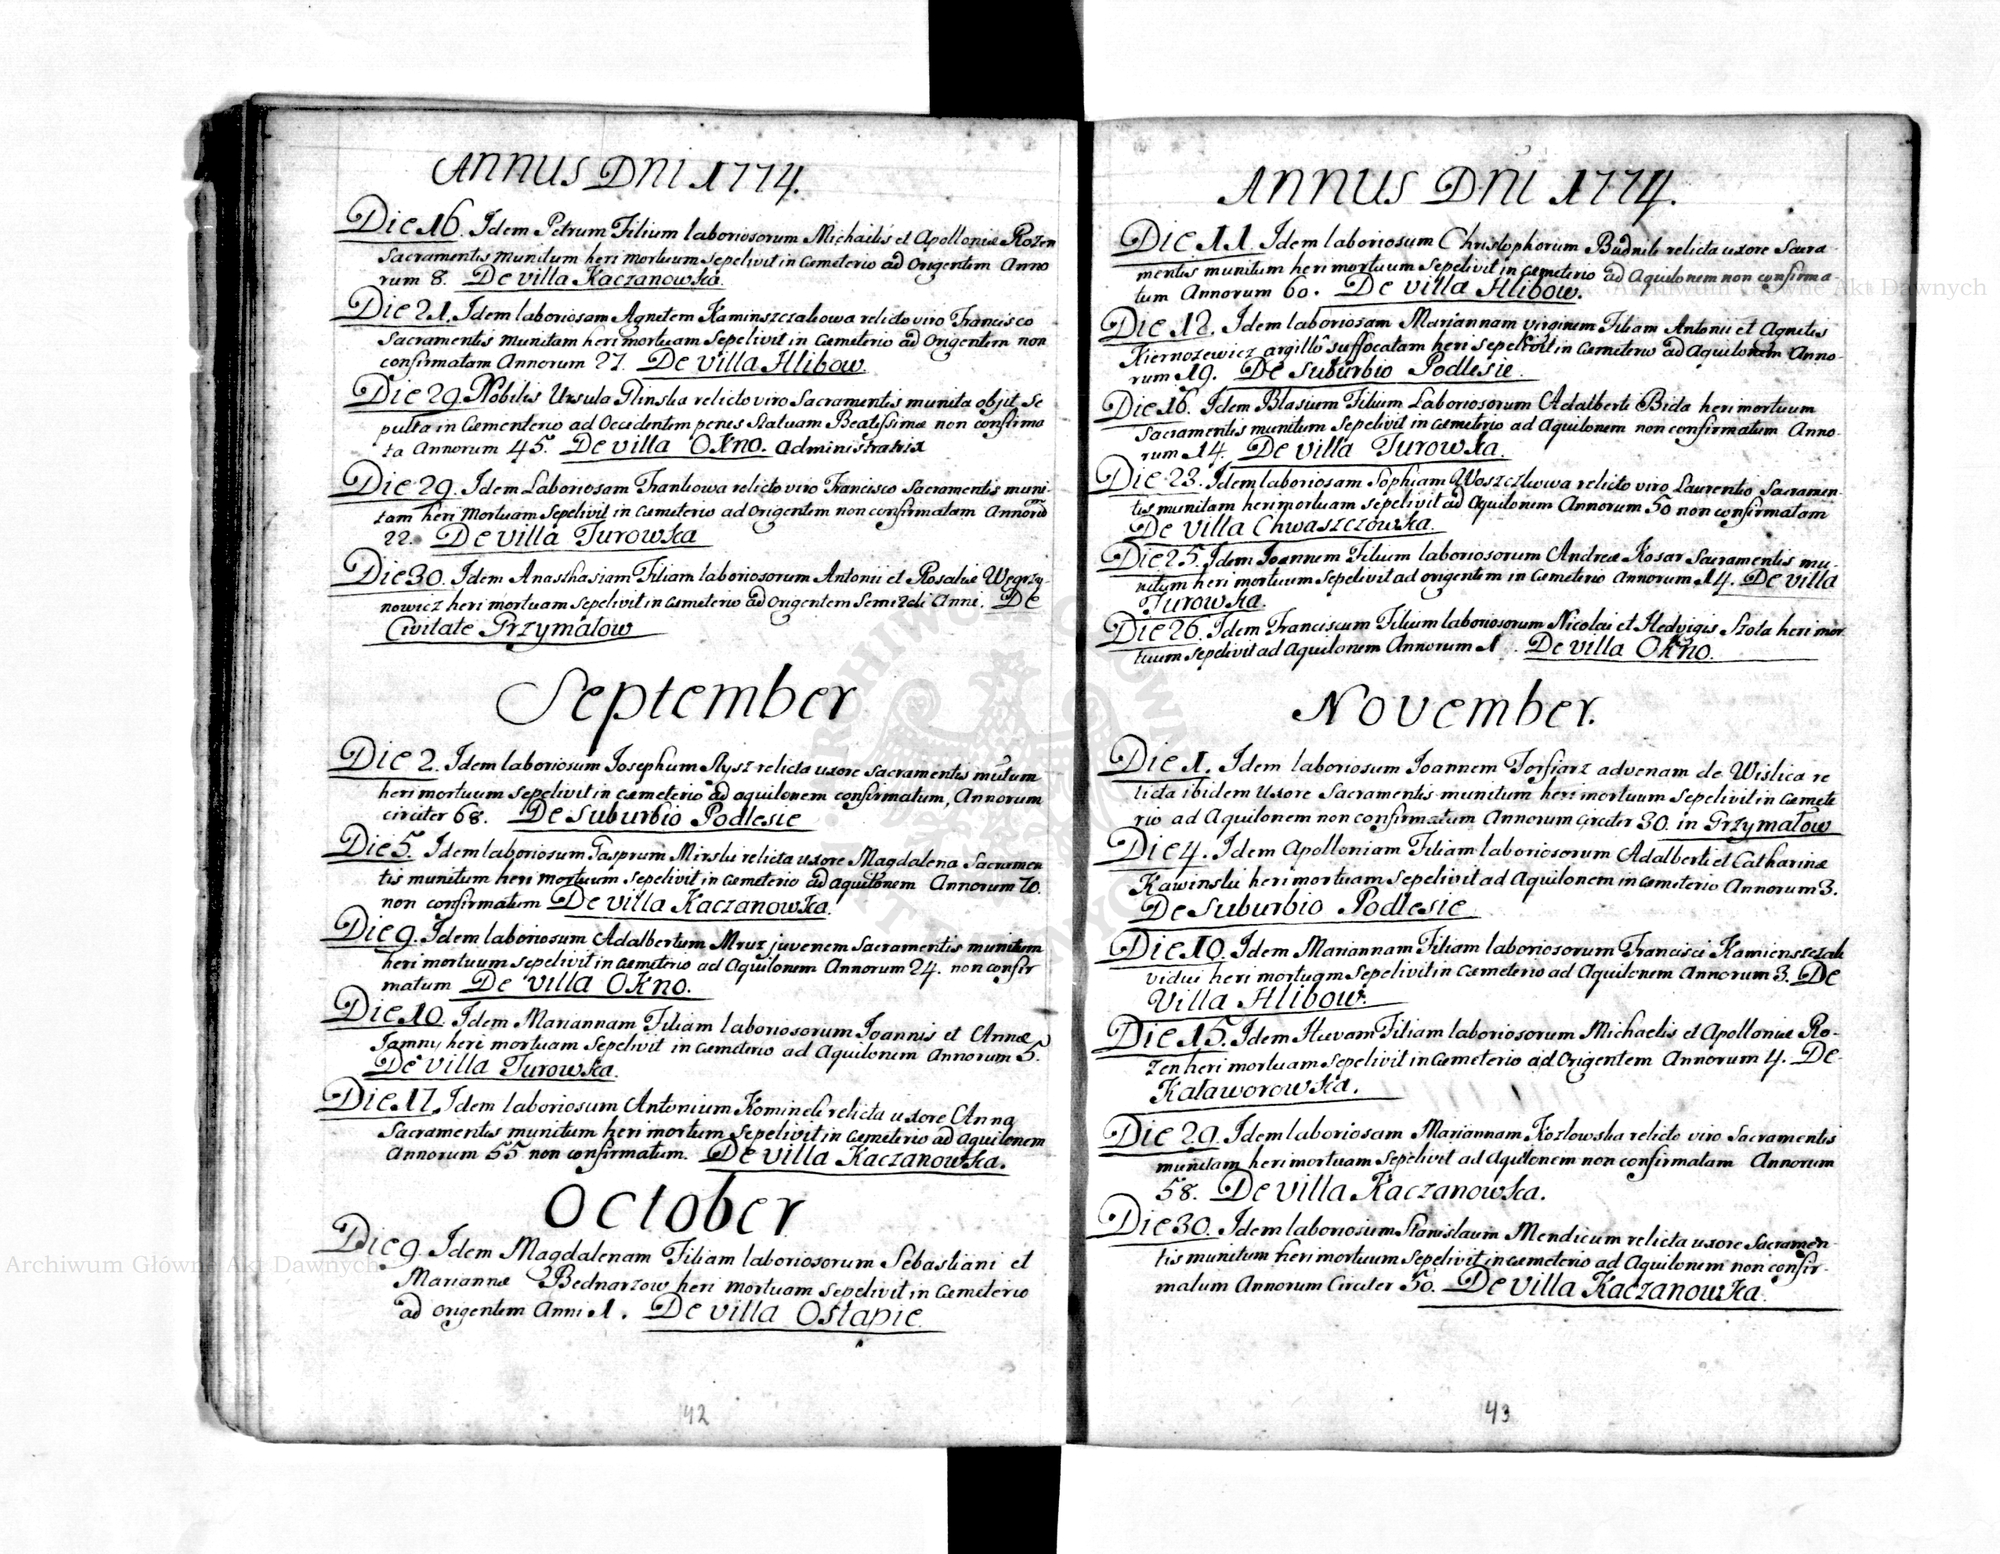 ANNUS DNI 1774.
Die 16. Idem Petrum Filium laboriosorum Michaelis et Apolloniæ Rozen
Sacramentis munitum heri mortuum sepelivit in Cæmeterio ad Origentem Anno
rum 8. De villa Kaczanowka.
Die 21. Idem laboriosam Agnetem Kaminszczakowa relicto viro Francisco
Sacramentis munitam heri mortuam Sepelivit in Cæmeterio ad Origentem non
confirmatam Annorum 27. De villa Hlibow.
Die 29. Nobilis Ursula Glinska relicto viro Sacramentis munita obijt se
pulta in Cœmenterio ad Occidentem penes Statuam Beatissimæ non confirma
ta Annorum 45. De villa Okno. administratrix
Die 29. Idem Laboriosam Frankowa relicto viro Francisco Sacramentis muni-
tam heri Mortuam Sepelivit in Cæmeterio ad Origentem non confirmatam Annorū
22. De villa Turowka
Die 30. Idem Anasthasiam Filiam laboriosorum Antonii et Rosaliæ Węgrzy-
nowicz heri mortuam sepelivit in Cæmeterio ad Origentem Semialti Anni. De
Civitate Grzymałow
September
Die 2. Idem laboriosum Josephum Słysz relicta uxore Sacramentis mūtum
heri mortuum sepelivit in cæmeterio ad aquilonem confirmatum, Annorum
circiter 68. De Suburbio Podlesie
Die 5. Idem laboriosum Gasprum Mirski relicta uxore Magdalena Sacramen
tis munitum heri mortuum Sepelivit in Cæmeterio ad aquilonem Annorum 70.
non confirmatum De villa Kaczanowka.
Die 9. Idem laboriosum Adalbertum Mruz juvenem Sacramentis munitum
heri mortuum sepelivit in cæmeterio ad Aquilonem Annorum 24. non confir
matum De villa Okno.
Die 10. Idem Mariannam Filiam laboriosorum Joannis et Annæ
Jamny heri mortuam Sepelivit in Cæmeterio ad Aquilonem Annorum 5.
De villa Turowka.
Die 17. Idem laboriosum Antonium Kominek relicta uxore Anna
Sacramentis munitum heri mortum Sepelivit in Cæmeterio ad aquilonem
Annorum 55 non confirmatum. De villa Kaczanowka.
October
Die 9. Idem Magdalenam Filiam laboriosorum Sebastiani et
Mariannæ Bednarzow heri mortuam sepelivit in Cæmeterio
ad origentem Anni 1. De villa Ostapie.
42
ANNUS DNI 1774.
Die 11. Idem laboriosum Christophorum Budnik relicta uxore Sacra-
mentis munitum heri mortuum Sepelivit in Cæmeterio ad Aquilonem non confirma-
tum Annorum 60. De villa Hlibow.
Die 12. Idem laboriosam Mariannam virginem Filiam Antonii et Agnetis
Kiernozewicz argillô suffocatam heri sepelivit in Cæmeterio ad Aquilonem Anno-
rum 19. De Suburbio Podlesie.
Die 16. Idem Blasium Filium Laboriosorum Adalberti Bida heri mortuum
Sacramentis munitum Sepelivit in Cæmeterio ad Aquilonem non confirmatum Anno-
rum 14. De villa Turowka.
Die 23. Idem laboriosam Sophiam Woszczkwa relicto viro Laurentio Sacramen-
tis munitam heri mortuam sepelivit ad Aquilonem Annorum 50 non confirmatam
De villa Chwaszczowka.
Die 25. Idem Joannem Filium laboriosorum Andreæ Kosar Sacramentis mu-
nitum heri mortuum Sepelivit ad origentem in Cæmeterio Annorum 14. De villa
Turowka.
Die 26. Idem Franciscum Filium laboriosorum Nicolai et Hedvigis Szota heri mor
tuum sepelivit ad Aquilonem Annorum 1. De villa Okno.
November.
Die 1. Idem laboriosum Joannem Torfiarz advenam de Wislica re
licta ibidem Uxore Sacramentis munitum heri mortuum Sepelivit in Cæmete
rio ad Aquilonem non confirmatum Annorum Circiter 30. in Grzymałow
Die 4. Idem Apolloniam Filiam laboriosorum Adalberti et Catharinæ
Kawinski heri mortuam Sepelivit ad Aquilonem in cæmeterio Annorum 3.
De Suburbio Podlesie
Die 10. Idem Mariannam Filiam laboriosorum Francisci Kamienszczak
vidui heri mortuam Sepelivit in Cæmeterio ad Aquilonem Annorum 3. De
Villa Hlibow.
Die 15. Idem Hevam Filiam laboriosorum Michaelis et Apolloniæ Ro-
zen heri mortuam Sepelivit in Cæmeterio ad Origentem Annorum 4. De
Kaławorowka.
Die 29. Idem laboriosam Mariannam Kozlowska relicto viro Sacramentis
munitam heri mortuam Sepelivit ad Aquilonem non confirmatam Annorum
58. De villa Kaczanowka.
Die 30. Idem laboriosum Stanislaum Mendicum relicta uxore Sacramen-
tis munitum heri mortuum Sepelivit in cæmeterio ad Aquilonem non confir-
matum Annorum Circiter 50. De villa Kaczanowka.
43
Archiwum Główne Akt Dawnych
Archiwum Główne Akt Dawnych